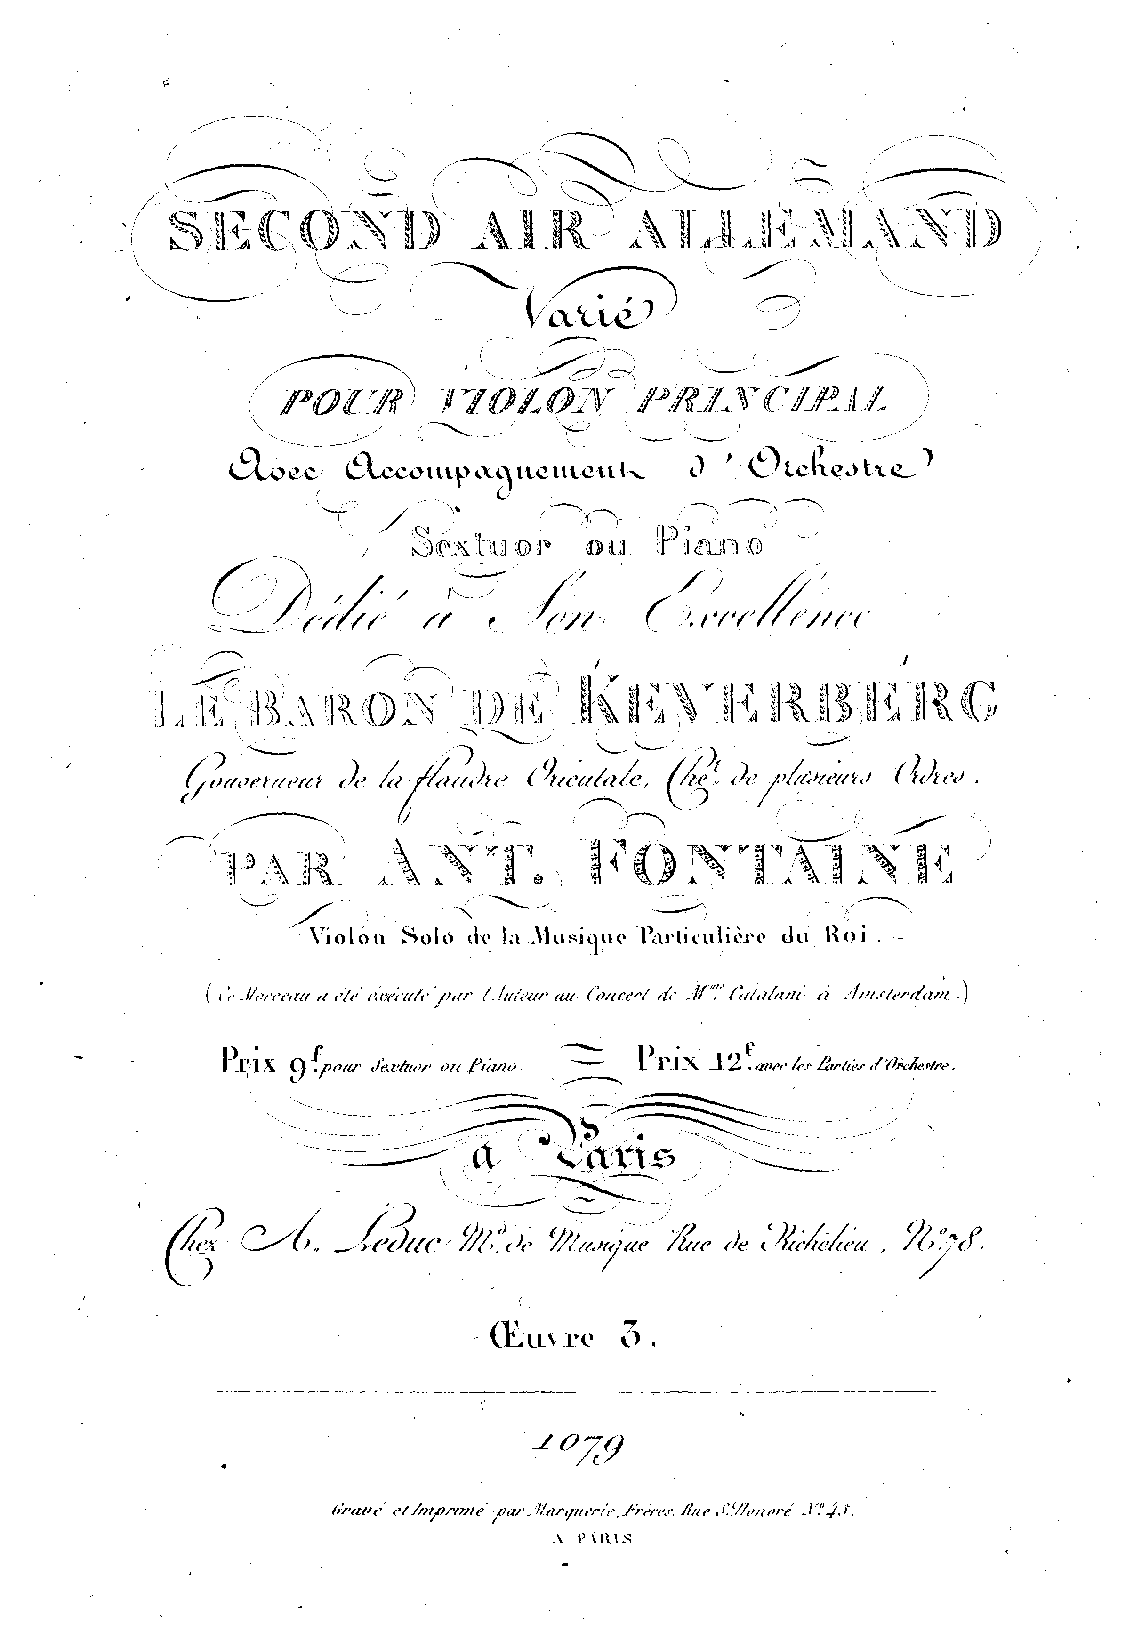 SECOND AIR ALLEMAND
Varié
POUR VIOLON PRINCIPAL
Avec Accompagnement d'Orchestre
Sextuor ou Piano
Dédié à Son Excellence
LE BARON DE KEVERBERG
Gouverneur de la flandre Orientale, Cher. de plusieurs Ordres.
PAR ANT. FONTAINE
Violon Solo de la Musique Particulière du Roi.
(Ce Morceau a été éxécuté par l'Auteur au Concert de Mme. Catalani à Amsterdam.)
Prix 9f. pour Sextuor ou Piano. Prix 12f. avec les Parties d'Orchestre.
à Paris
Chez A. Leduc Md. de Musique Rue de Richelieu, No. 78.
Œuvre 3.
1079
Gravé et Imprimé par Marquerie, Frères, Rue St. Honoré No. 45.
A PARIS